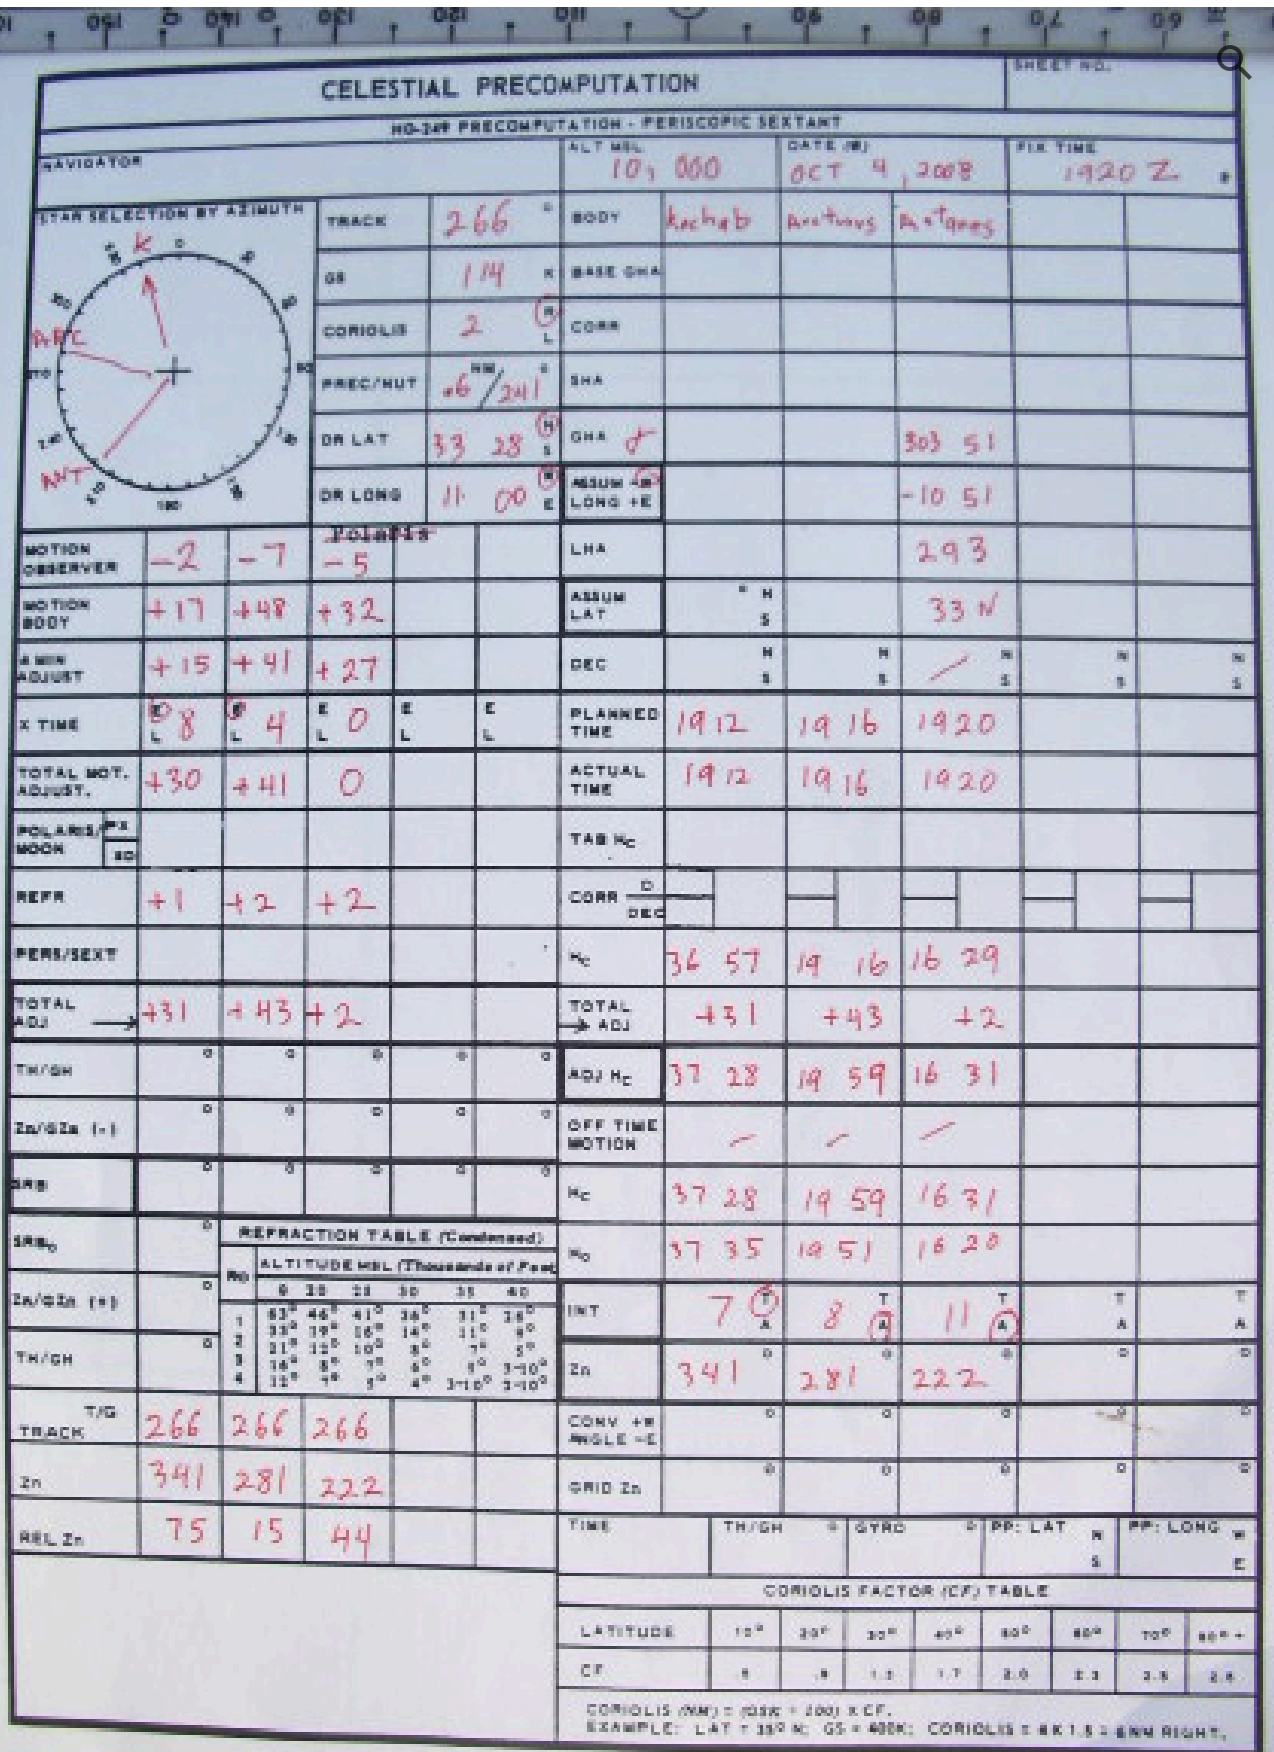 150 140 130 120 110 90 80 70 60
SHEET NO.
CELESTIAL PRECOMPUTATION
HO-249 PRECOMPUTATION - PERISCOPIC SEXTANT
NAVIGATOR
ALT MSL 10,000
DATE OCT 4, 2008
FIX TIME 1920 Z
STAR SELECTION BY AZIMUTH
K 0
ARC
ANT
180
TRACK 266 °
GS 114 K
CORIOLIS 2 R L
PREC/NUT .6 NM / 241 °
DR LAT 33 28 N S
DR LONG 11 00 W E
BODY Kochab Arcturus Antares
BASE GHA
CORR
SHA
GHA ♈ 303 51
ASSUM -W LONG +E -10 51
LHA 293
ASSUM LAT ° N S 33 N
DEC N S N S N S N S N S
PLANNED TIME 1912 1916 1920
ACTUAL TIME 1912 1916 1920
TAB Hc
CORR D DEC
Hc 36 57 19 16 16 29
TOTAL ADJ +31 +43 +2
ADJ Hc 37 28 19 59 16 31
OFF TIME MOTION - - -
Hc 37 28 19 59 16 31
Ho 37 35 19 51 16 20
INT 7 T A 8 T A 11 T A T A T A
Zn 341 281 222
CONV +W ANGLE -E
GRID Zn
Polaris
MOTION OBSERVER -2 -7 -5
MOTION BODY +17 +48 +32
4 MIN ADJUST +15 +41 +27
X TIME E L 8 E L 4 E L 0 E L E L
TOTAL MOT. ADJUST. +30 +41 0
POLARIS/MOON SD
REFR +1 +2 +2
PERS/SEXT
TOTAL ADJ +31 +43 +2
TH/GH
Zn/GZn (-)
SRB
Zn/GZn (+)
TH/GH
REFRACTION TABLE (Condensed)
ALTITUDE MSL (Thousands of Feet
T/G TRACK 266 266 266
Zn 341 281 222
REL Zn 75 15 44
TIME TH/GH GYRO PP: LAT N S PP: LONG W E
CORIOLIS FACTOR (CF) TABLE
LATITUDE 10° 20° 30° 40° 50° 60° 70° 80° +
CF 1.7 2.0 2.3
EXAMPLE: LAT = 35° N; GS = 400K; CORIOLIS = 4 X 1.5 = 6NM RIGHT.